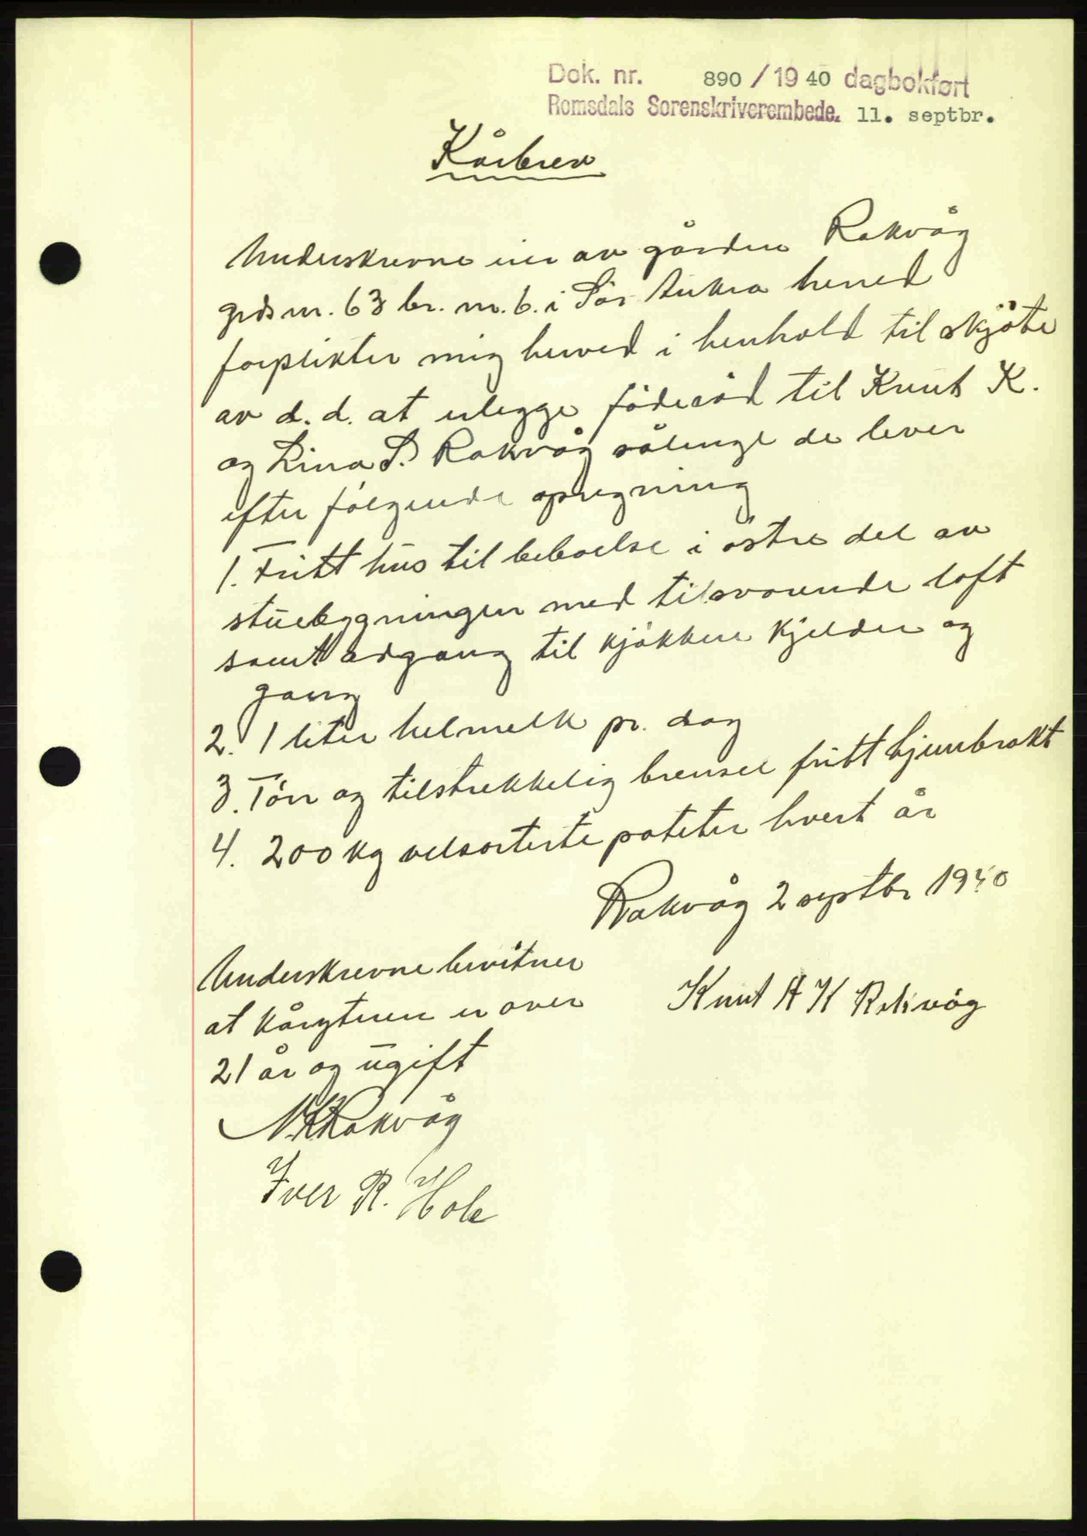 Dok. nr. 890 / 1940 dagbokført
Romsdals Sorenskriverembede. 11. septbr.
Kårbrev
Underskrevne eier av gården Rakvåg
grdsnr. 63 br. nr. 6. i Sør Aukra herred
forplikter mig herved i henhold til skjöte
av d. d. at utegge föderåd til Knut K.
og Lina S. Rakvåg sålenge de lever
efter fölgende opregning
1. Fritt hus til beboelse i östre del av
stuebygningen med tilsvarende loft
samt adgang til kjökken kjelder og
gang
2. 1 liter helmelk pr. dag
3. Törr og tilstrekkelig brensel fritt hjembrakt
4. 200 kg velsorterte poteter hvert år
Rakvåg 2 septbr 1940
Underskrevne bevitner
at kårgteren er over
21 år og ugift
Knut A K Rakvåg
N. K. Rakvåg
Iver R. Hole